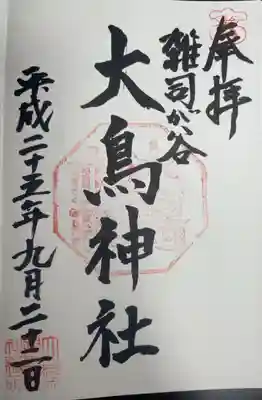 奉拝
雑司が谷
大鳥神社
平成二十五年九月二十二日